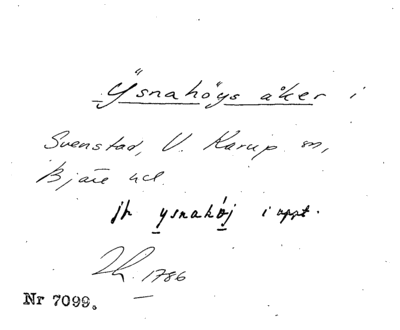 Ÿsnahöys åker i
Svenstad, V. Karup sn,
Bjäre hd.
jh ysnahöj i uppt.
Lh. 1786
Nr 7099.